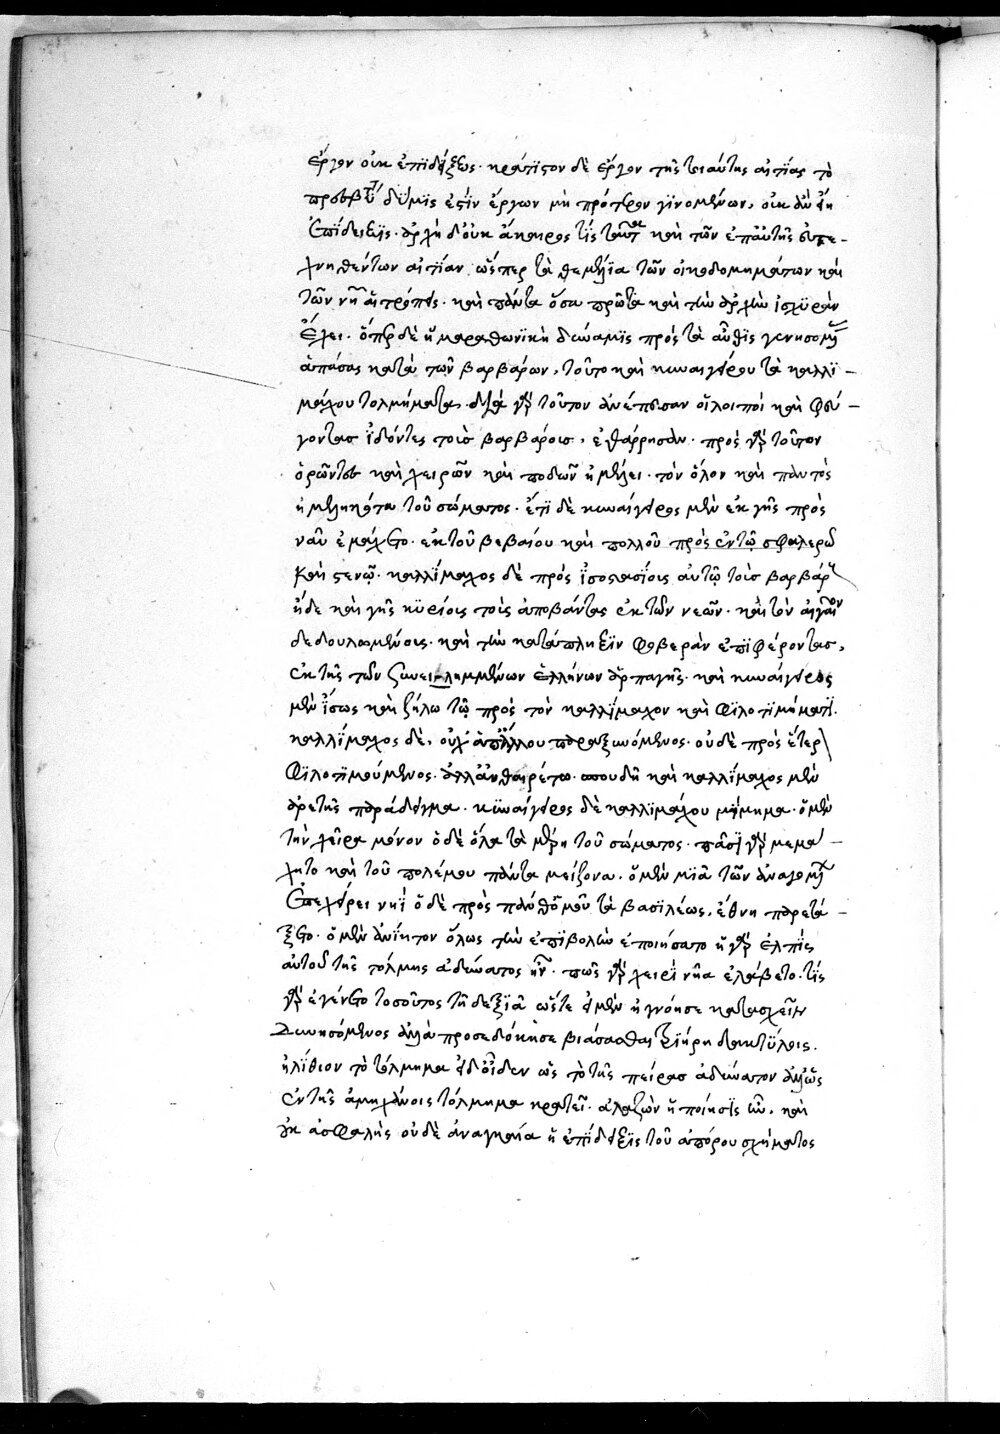 ἔργον οὐκ ἐπιδείξεως· κράτιστον δὲ ἔργον τῆς τοιαύτης αἰτίας τὸ
πρεσβεῖ δ' ὑμῖς ἐστὶν ἔργων μὴ πρότερον γινομένων, οὐκ ἂν ἦν
ἐπίδειξις· ἀρχὴ δ' οὐκ ἄκαιρος τίς ταύτης καὶ τῶν ἐπ' αὐτῆς εὖ τε –
χνηθέντων αἰτίαν ὥσπερ τὰ θεμέλια τῶν οἰκοδομημάτων καὶ
τῶν νηῶν αἱ τρόπεις· καὶ πάντα ὅσα πρῶτα καὶ τὴν ἀρχὴν ἰσχυρὰν
ἔχει· ὅπερ δὲ ἡ μαραθωνικὴ δύναμις πρὸς τὰ αὖθις γενησομένας
ἁπάσας κατὰ τῶν βαρβάρων, τοῦτο καὶ κυναιγείρου τὰ καλλι –
μάχου τολμήματα· διὰ γὰρ τοῦτον ἀνέπεσαν οἱ λοιποὶ καὶ φεύ –
γοντας ἰδόντες τοὺς βαρβάρους, ἐθάρρησαν· πρὸς γὰρ τοῦτον
ὁρῶντες καὶ χειρῶν καὶ ποδῶν ἠμέλει· τὸν ὅλον καὶ παντὸς
ἠμεληκότα τοῦ σώματος· ἔτι δὲ κυναίγειρος μὲν ἐκ γῆς πρὸς
ναῦν ἐμάχετο· ἐκ τοῦ βεβαίου καὶ πολλοῦ πρὸς ἐν τῷ σφαλερῷ
καὶ στενῷ· καλλίμαχος δὲ πρὸς ἰσοστασίοις αὐτῷ τοῖς βαρβάροις
ἤδε καὶ γῆς κυρίοις τοὺς ἀποβάντας ἐκ τῶν νεῶν· καὶ τὸν αἰγαῖον
δεδουλωμένους· καὶ τὴν κατάπληξιν φοβερὰν ἐπιφέροντας,
ἐκ τῆς τῶν ξυνειλημμένων ἑλλήνων ἁρπαγῆς· καὶ κυναίγειρος
μὲν ἴσως καὶ ζήλω τῷ πρὸς τὸν καλλίμαχον καὶ φιλοτιμήματι·
καλλίμαχος δὲ, οὐχ ἀπ' ἄλλου παροξυνόμενος· οὐδὲ πρὸς ἕτερον
φιλοτιμούμενος· ἀλλ' αὐθαιρέτω σπουδῆ καὶ καλλίμαχος μὲν
ἀρετῆς παράδειγμα· κυναίγειρος δὲ καλλιμάχου μίμημα· ὁ μὲν
τὴν χεῖρα μόνον ὁ δὲ ὅλα τὰ μέρη τοῦ σώματος· πᾶσι γὰρ μεμά –
χητο καὶ τοῦ πολέμου πάντα μείζονα· ὁ μὲν μιᾶ τῶν ἀναγομένων
ἐπεχείρει νηὶ ὁ δὲ πρὸς πάνθ' ὁμοῦ τὰ βασιλέως, ἔθνη παρετά –
ξετο· ὁ μὲν ἀνόητον ὅλως τὴν ἐπιβολὴν ἐποιήσατο ἡ γὰρ ἐλπὶς
αὐτοῦ τῆς τόλμης ἀδύνατος ἦν· πῶς γὰρ χειρὶ νῆα ἐλάβετο· τίς
γὰρ ἐγένετο τοσοῦτος τῆ δεξιᾶ ὥστε εἰ μὲν ἠγνόησε κατασχεῖν
δυνησόμενος ἀλλὰ προσεδόκησε βιάσασθαι τριήρη δακτύλοις·
ἠλίθιον τὸ τόλμημα εἰ δ' οἶδεν ὡς τὸ τῆς πείρας ἀδύνατον ἄλλως
ἐν τῆς ἀμηχάνοις τόλμημα κρατεῖ· ἀλαζὼν ἡ ποίησις οὖν, καὶ
οὐκ ἀσφαλὴς οὐδὲ ἀναγκαία ἡ ἐπίδειξις τοῦ ἀπόρου σχήματος